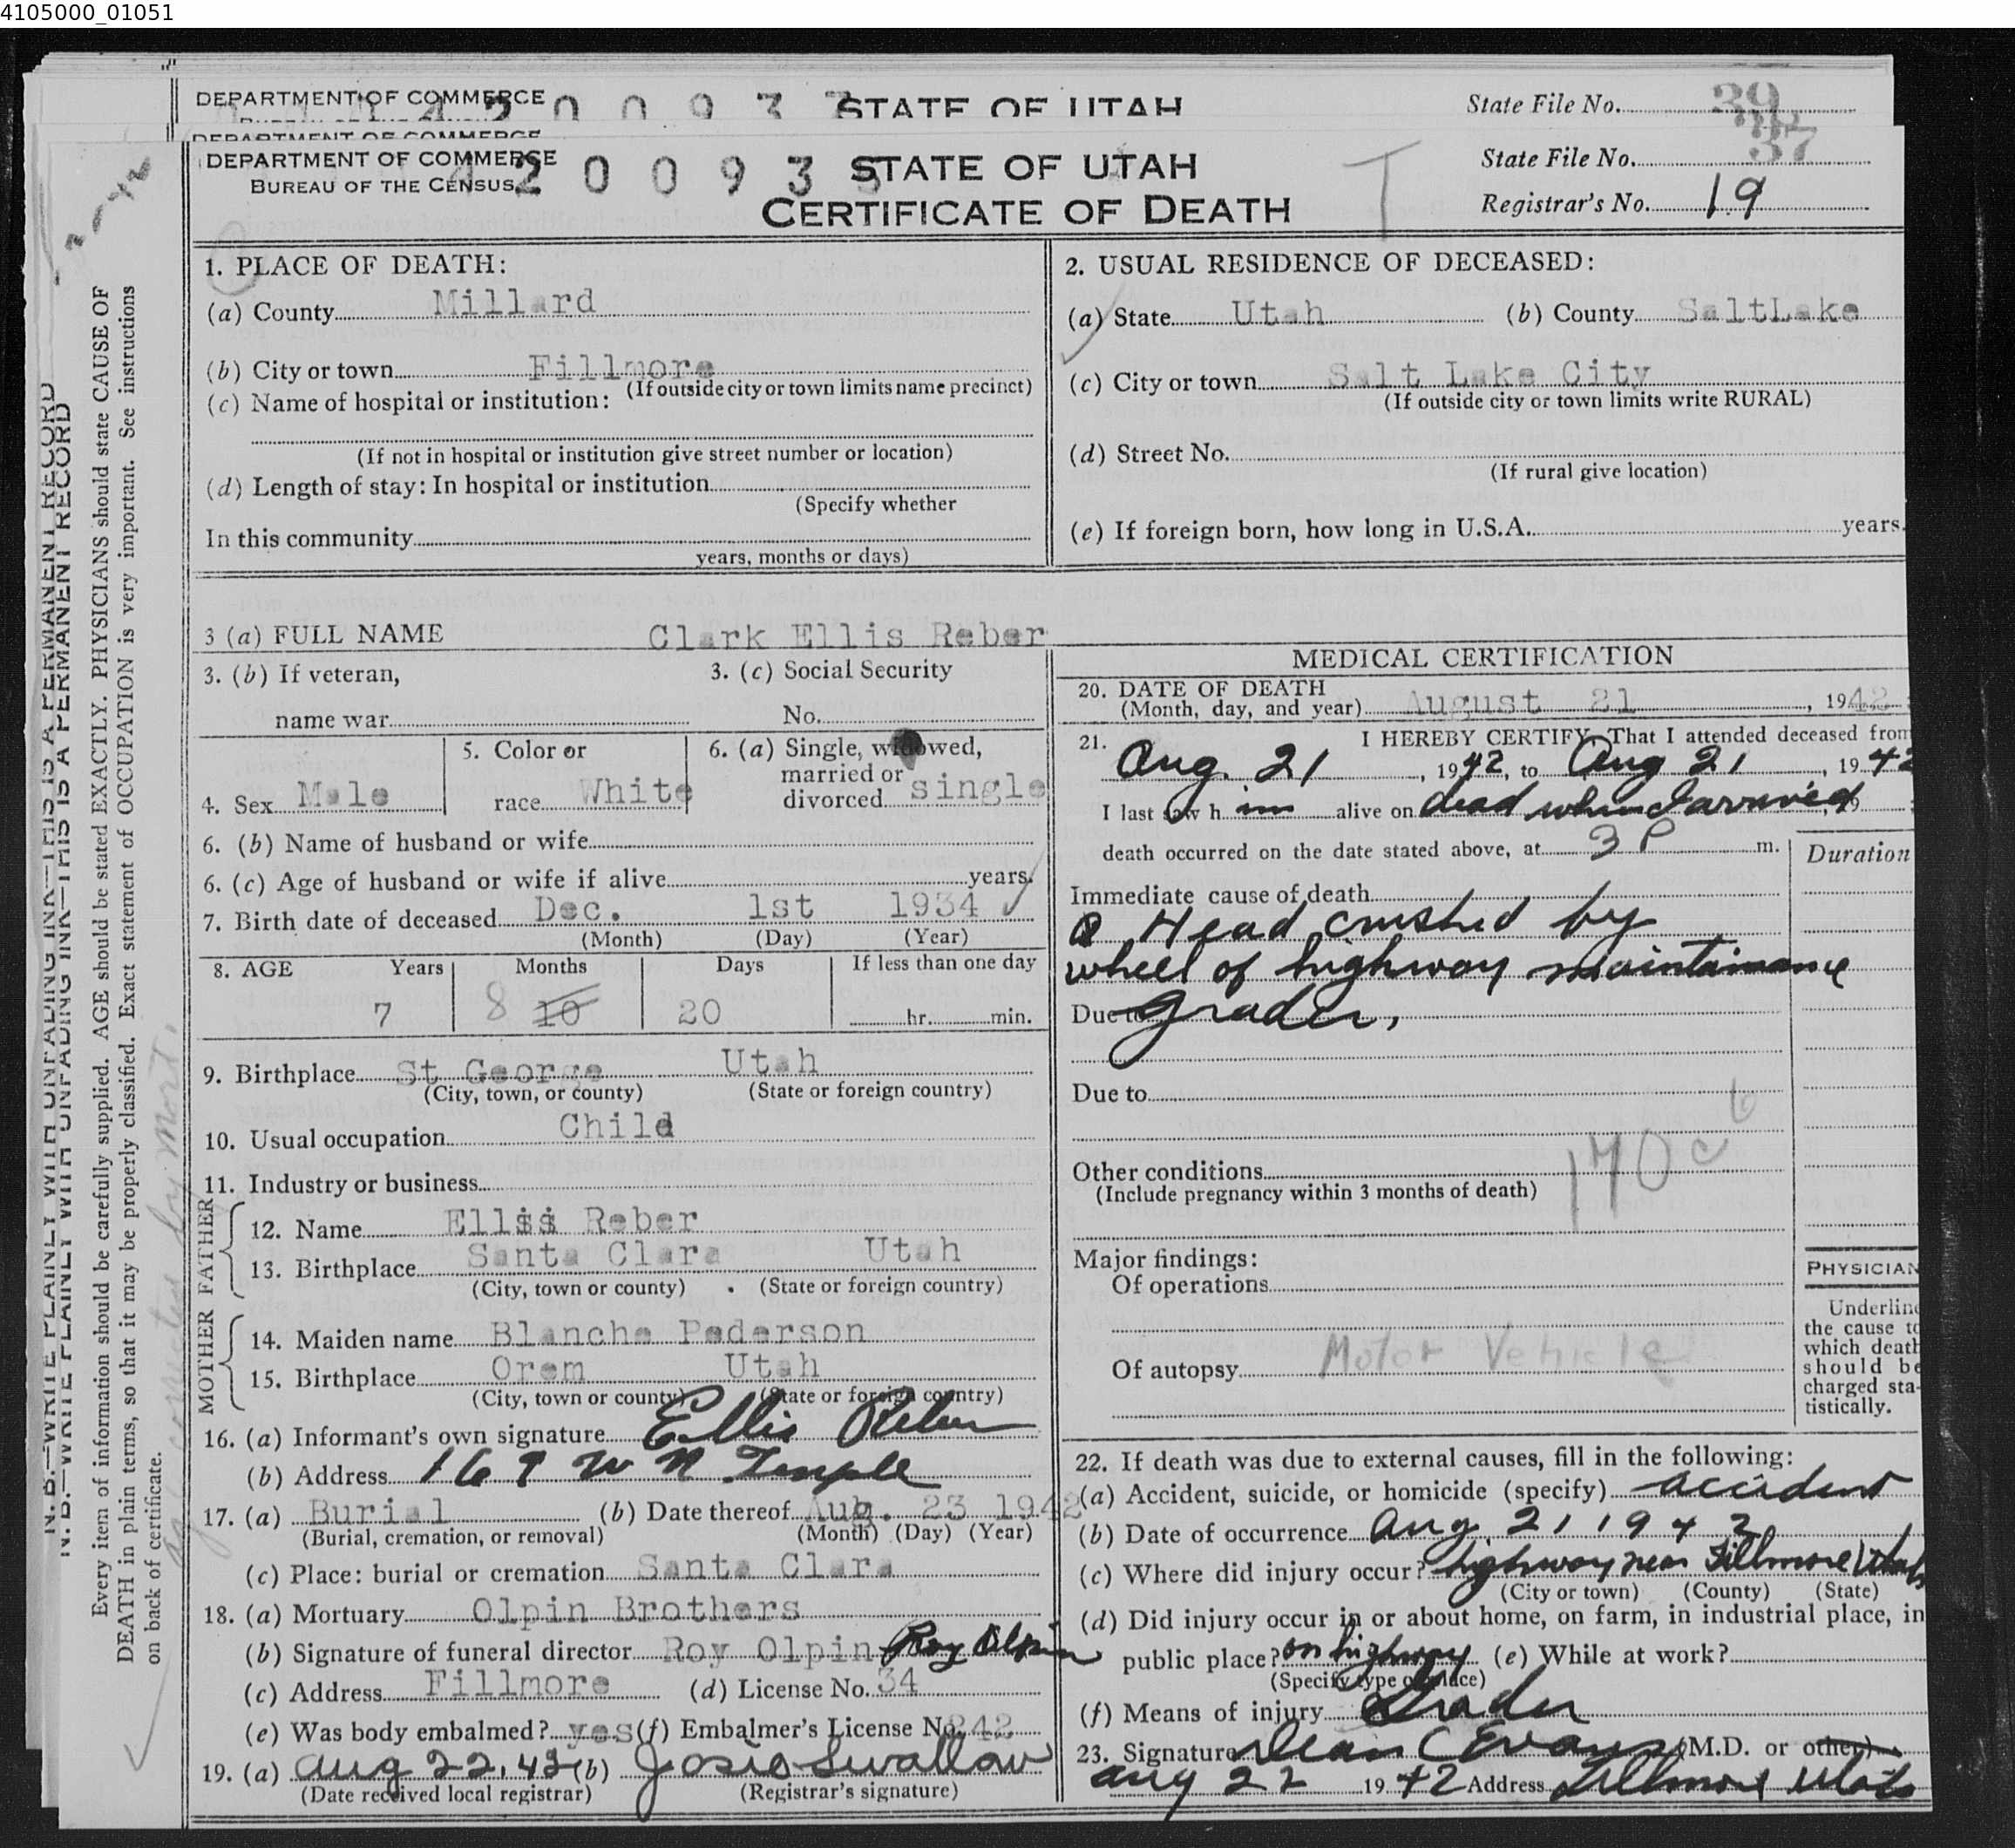 4105000_01051
DEPARTMENT OF COMMERCE
STATE OF UTAH
State File No. 39
DEPARTMENT OF COMMERCE
DEPARTMENT OF COMMERCE
BUREAU OF THE CENSUS
42 0 0 9 3 5
STATE OF UTAH
CERTIFICATE OF DEATH
T
State File No. 37
Registrar's No. 19
N. B.—WRITE PLAINLY WITH UNFADING INK—THIS IS A PERMANENT RECORD
N. B.—WRITE PLAINLY WITH UNFADING INK—THIS IS A PERMANENT RECORD
Every item of information should be carefully supplied. AGE should be stated EXACTLY. PHYSICIANS should state CAUSE OF
DEATH in plain terms, so that it may be properly classified. Exact statement of OCCUPATION is very important. See instructions
on back of certificate.
1. PLACE OF DEATH:
(a) County Millard
(b) City or town Fillmore
(If outside city or town limits name precinct)
(c) Name of hospital or institution:
(If not in hospital or institution give street number or location)
(d) Length of stay: In hospital or institution
(Specify whether
In this community
years, months or days)
2. USUAL RESIDENCE OF DECEASED:
(a) State Utah (b) County SaltLake
(c) City or town Salt Lake City
(If outside city or town limits write RURAL)
(d) Street No.
(If rural give location)
(e) If foreign born, how long in U.S.A. years.
3 (a) FULL NAME Clark Ellis Reber
3. (b) If veteran,
name war
3. (c) Social Security
No.
4. Sex Male
5. Color or
race White
6. (a) Single, widowed,
married or
divorced single
6. (b) Name of husband or wife
6. (c) Age of husband or wife if alive years.
7. Birth date of deceased Dec. 1st 1934
(Month) (Day) (Year)
8. AGE Years Months Days If less than one day
7 8 10 20 hr. min.
9. Birthplace St George Utah
(City, town, or county) (State or foreign country)
10. Usual occupation Child
11. Industry or business
FATHER
12. Name Ellis Reber
13. Birthplace Santa Clara Utah
(City, town or county) (State or foreign country)
MOTHER
14. Maiden name Blanche Pederson
15. Birthplace Orem Utah
(City, town or county) (State or foreign country)
16. (a) Informant's own signature Ellis Reber
(b) Address 167 W N Temple
17. (a) Burial (b) Date thereof Aug. 23 1942
(Burial, cremation, or removal) (Month) (Day) (Year)
(c) Place: burial or cremation Santa Clara
18. (a) Mortuary Olpin Brothers
(b) Signature of funeral director Roy Olpin Roy Olpin
(c) Address Fillmore (d) License No. 34
(e) Was body embalmed? yes (f) Embalmer's License No. 242
19. (a) Aug 22, 42 (b) Josie Swallow
(Date received local registrar) (Registrar's signature)
MEDICAL CERTIFICATION
20. DATE OF DEATH
(Month, day, and year) August 21, 1942
21. I HEREBY CERTIFY, That I attended deceased from
Aug. 21, 1942, to Aug 21, 1942
I last saw h im alive on dead when I arrived, 19
death occurred on the date stated above, at 3 P m.
Duration
Immediate cause of death
Head crushed by
wheel of highway maintainance
Due to grader,
Due to
Other conditions
(Include pregnancy within 3 months of death)
170c
6
Major findings:
Of operations
Of autopsy Motor Vehicle
PHYSICIAN
Underline
the cause to
which death
should be
charged sta-
tistically.
22. If death was due to external causes, fill in the following:
(a) Accident, suicide, or homicide (specify) accident
(b) Date of occurrence Aug. 21 1942
(c) Where did injury occur? highway near Fillmore Utah
(City or town) (County) (State)
(d) Did injury occur in or about home, on farm, in industrial place, in
public place? on highway (e) While at work?
(Specify type of place)
(f) Means of injury Grader
23. Signature Dean C Evans (M.D. or other)
Aug 22 1942 Address Fillmore Utah